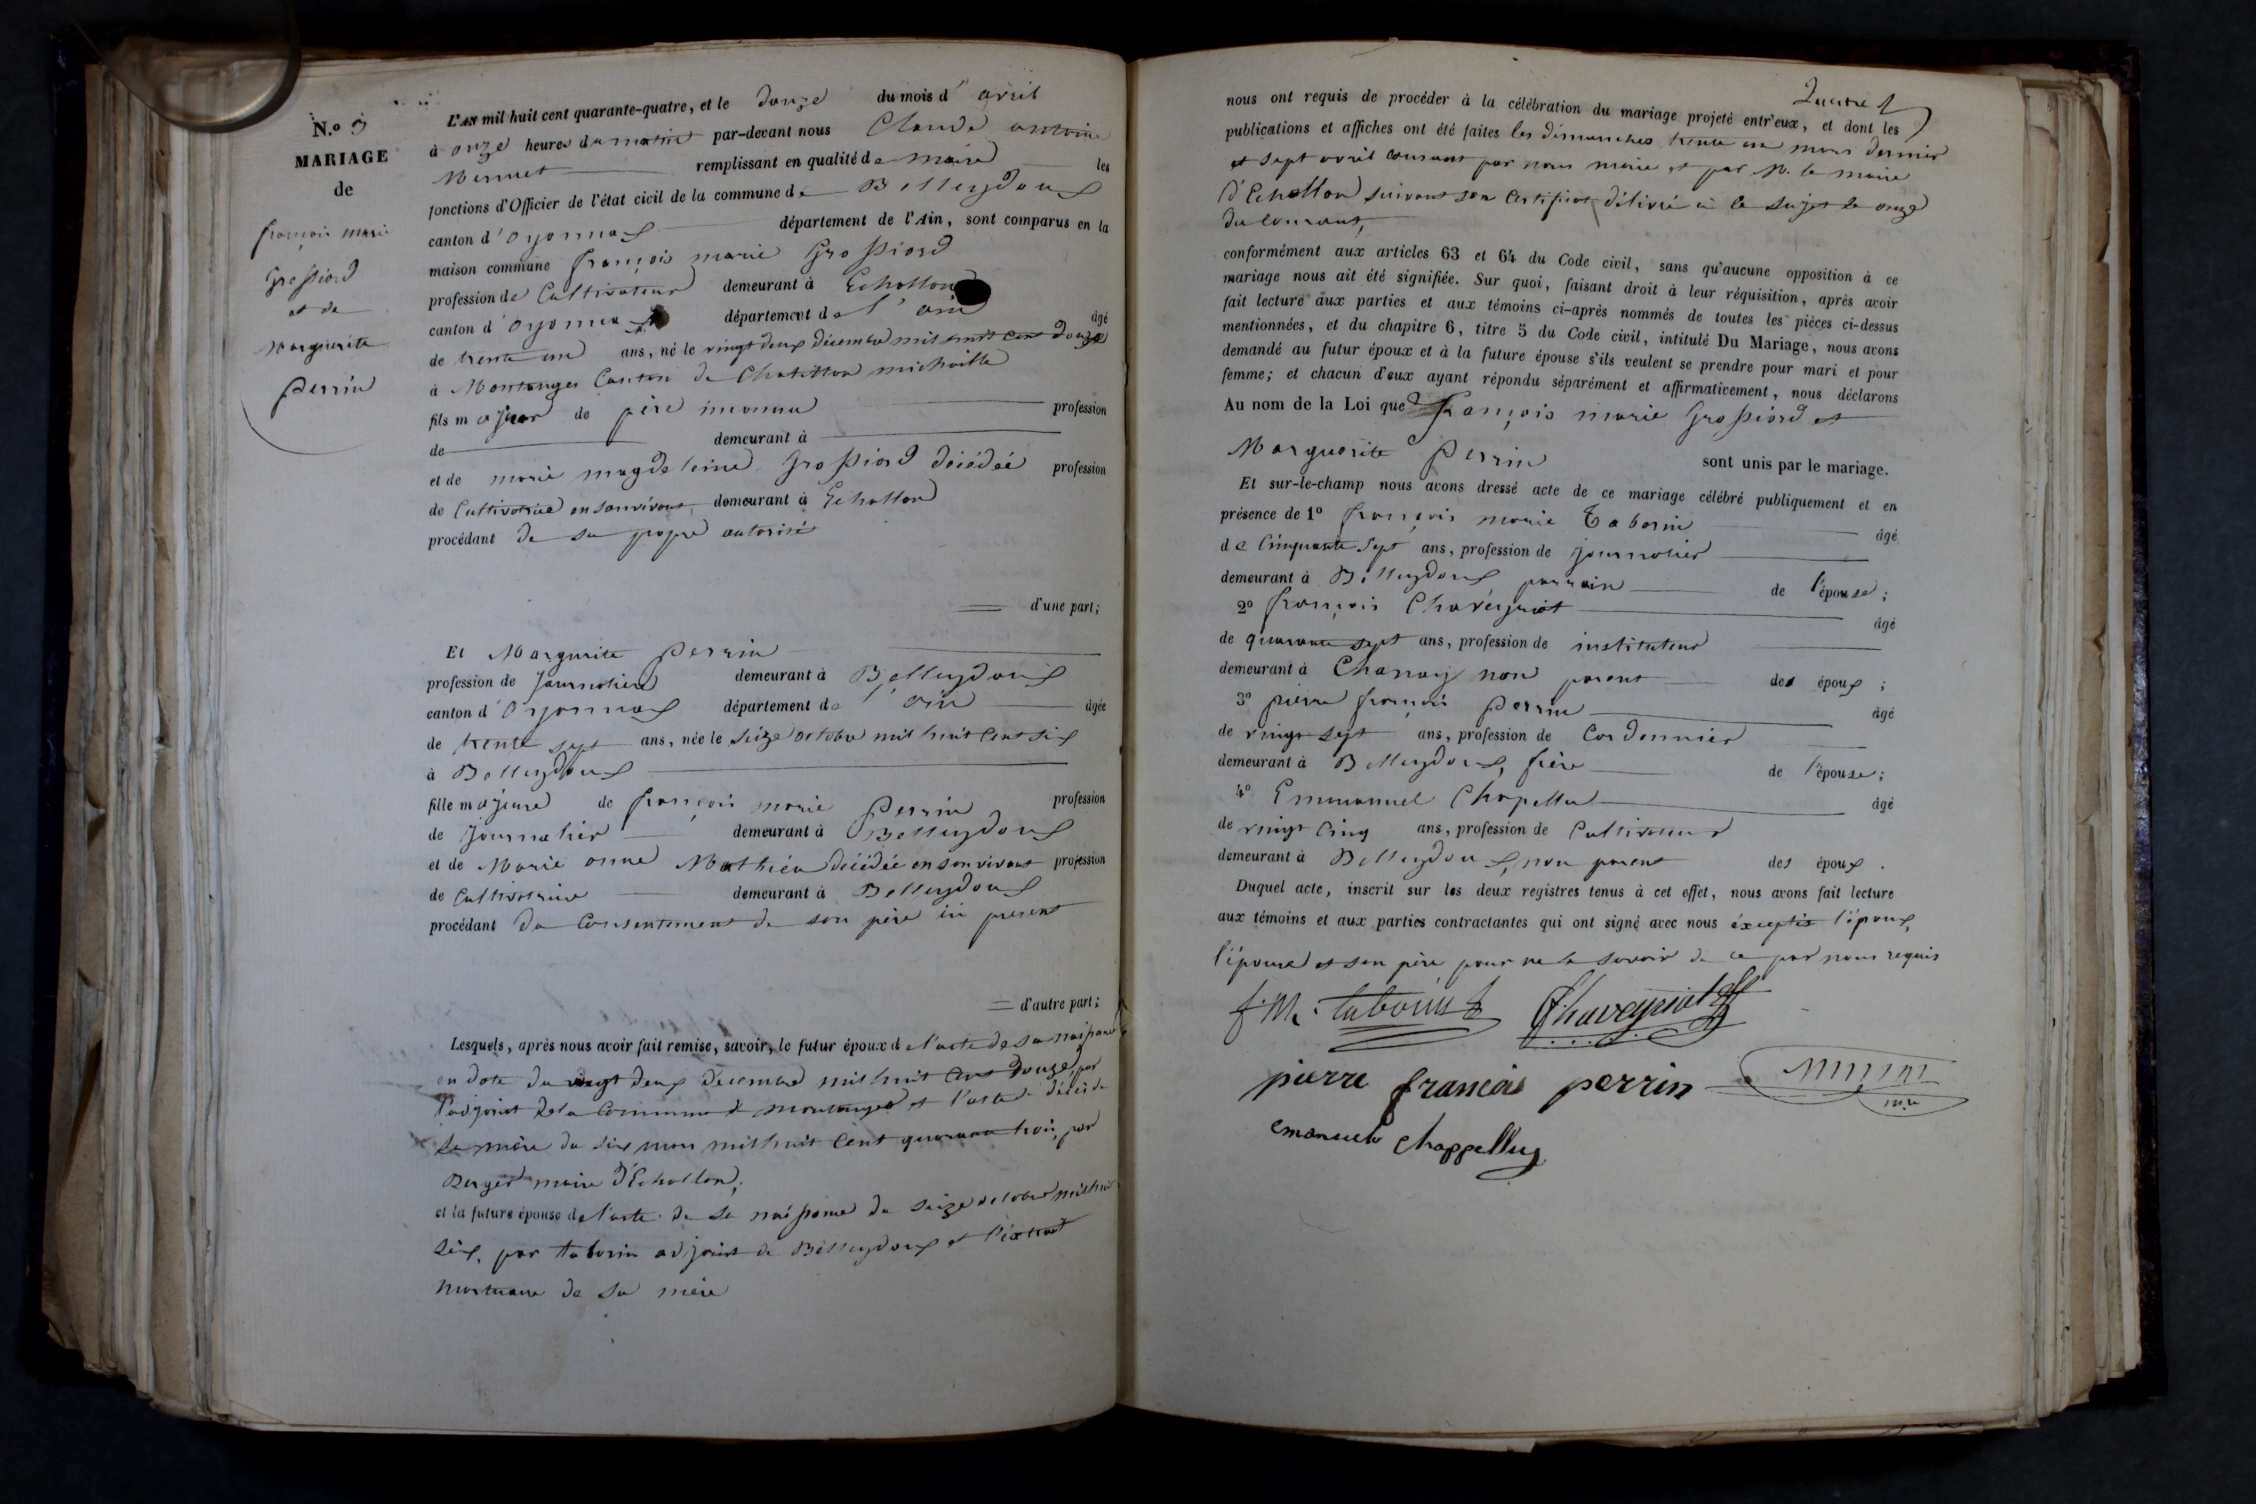 N.o 3
MARIAGE
de
françois marie
Grossiord
et de
Marguerite
Perrin
L'AN mil huit cent quarante-quatre, et le douze du mois d' avril
à onze heures du matin par-devant nous Claude antoine
Mermet remplissant en qualité de maire les
fonctions d'Officier de l'état civil de la commune de Belleydoux
canton d'Oyonnax département de l'Ain, sont comparus en la
maison commune françois marie Grossiord
profession de Cultivateur demeurant à Echallon
canton d'Oyonnax département de l'ain âgé
de trente un ans, né le vingt deux décembre mil huit cent douze
à Montanges Canton de Chatillon michaille
fils majeur de père inconnu profession
de demeurant à
et de marie magdeleine Grossiord décédée profession
de Cultivatrice en son vivant demeurant à Echallon
procédant de sa propre autorité
d'une part;
Et Marguerite Perrin
profession de Journalière demeurant à Belleydoux
canton d'Oyonnax département de l'ain âgée
de trente sept ans, née le seize octobre mil huit cent six
à Belleydoux
fille majeure de françois marie Perrin profession
de Journalier demeurant à Belleydoux
et de Marie anne Mathieu décédée en son vivant profession
de Cultivatrice demeurant à Belleydoux
procédant du Consentement de son père ici présent
d'autre part;
Lesquels, après nous avoir fait remise, savoir, le futur époux de l'acte de sa naissance
en date du vingt deux décembre mil huit cent douze, par
l'adjoint de la Commune de montanges et l'acte de décès de
sa mère du six mars mil huit cent quarante trois, par
Berger maire d'Echallon;
et la future épouse de l'acte de sa naissance du seize octobre mil huit
six, par taborin adjoint de Belleydoux et l'extrait
mortuaire de sa mère
quatre
nous ont requis de procéder à la célébration du mariage projeté entr'eux, et dont les
publications et affiches ont été faites les dimanches trente un mars dernier
et sept avril courant par nous maire et par M. le maire
d'Echallon suivant son Certificat délivré à ce sujet le onze
du courant,
conformément aux articles 63 et 64 du Code civil, sans qu'aucune opposition à ce
mariage nous ait été signifiée. Sur quoi, faisant droit à leur réquisition, après avoir
fait lecture aux parties et aux témoins ci-après nommés de toutes les pièces ci-dessus
mentionnées, et du chapitre 6, titre 5 du Code civil, intitulé Du Mariage, nous avons
demandé au futur époux et à la future épouse s'ils veulent se prendre pour mari et pour
femme; et chacun d'eux ayant répondu séparément et affirmativement, nous déclarons
Au nom de la Loi que françois marie Grossiord et
Marguerite Perrin sont unis par le mariage.
Et sur-le-champ nous avons dressé acte de ce mariage célébré publiquement et en
présence de 1o françois marie Taborin âgé
de Cinquante sept ans, profession de journalier
demeurant à Belleydoux parrain de l'épouse;
2o françois Chaveyriat âgé
de quarante sept ans, profession de instituteur
demeurant à Chanay non parent des époux;
3o pierre françois Perrin âgé
de vingt sept ans, profession de Cordonnier
demeurant à Belleydoux, frère de l'épouse;
4o Emmanuel Chapellu âgé
de vingt cinq ans, profession de Cultivateur
demeurant à Belleydoux, non parent des époux.
Duquel acte, inscrit sur les deux registres tenus à cet effet, nous avons fait lecture
aux témoins et aux parties contractantes qui ont signé avec nous exceptés l'époux,
l'épouse et son père pour ne le savoir de ce par nous requis
f. M. taborin Chaveyriat
pierre francois perrin mermet
maire
emanuel chappelluz